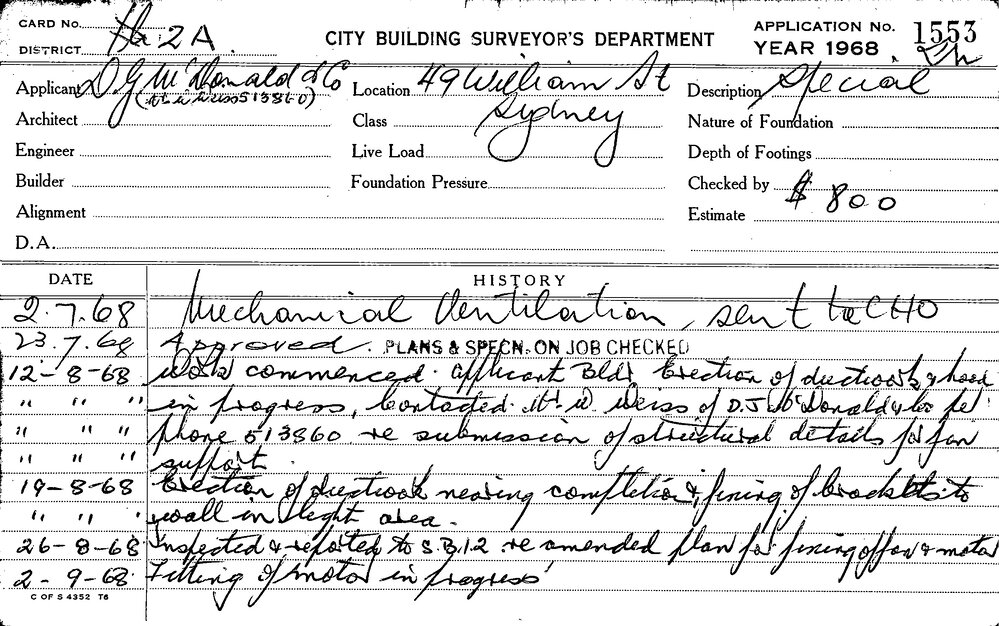 CARD No.
DISTRICT 2A.
CITY BUILDING SURVEYOR'S DEPARTMENT
APPLICATION No. 1553
YEAR 1968
Applicant D J McDonald & Co
(Mr W Weiss 513860)
Location 49 William St
Sydney
Description Special
Architect
Class
Nature of Foundation
Engineer
Live Load
Depth of Footings
Builder
Foundation Pressure
Checked by
Alignment
Estimate $ 800
D.A.
DATE HISTORY
2.7.68 Mechanical Ventilation, sent to CHO
23.7.68 Approved. PLANS & SPECN. ON JOB CHECKED
12-8-68 Work commenced. applicant Bldr Erection of ductwork & hood
" " " in progress, Contacted Mr W Weiss of D.J McDonald & Co per
" " " phone 513860 re submission of structural details for fan
" " " support.
19-8-68 Erection of ductwork nearing completion & fixing of brackets to
" " " wall in light area.
26-8-68 Inspected & reported to S.B.I.2 re amended plan for fixing of fan & motor
2-9-68 Fitting of motor in progress
C OF S 4352 T6